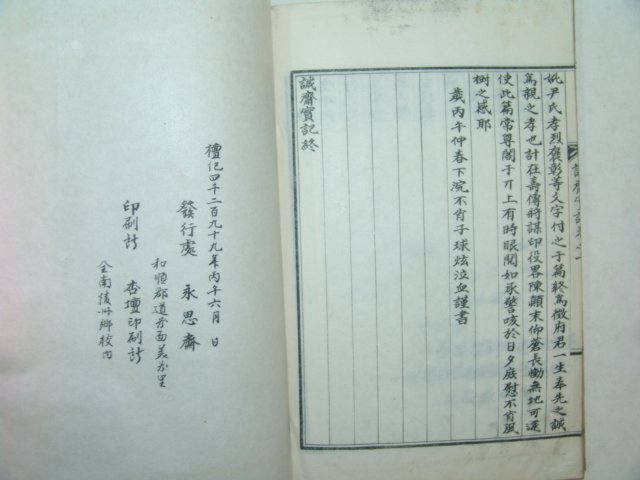 妣尹氏孝烈褒彰等文字付之于篇終爲徵府君一生奉先之誠
爲親之孝也計在壽傳將謀印役畧陳顛末仰蒼長慟無地可逮
使此篇常尊閣于丌上有時眼閱如承警咳於日夕庭慰不肖風
樹之感耶
歲丙午仲春下浣不肖子球炫泣血謹書
誠齋實記終
檀紀四千二百九十九年丙午六月 日
發行處 永思齋
和順郡道谷面美谷里
印刷計 杏壇印刷計
全南綾州鄕校內